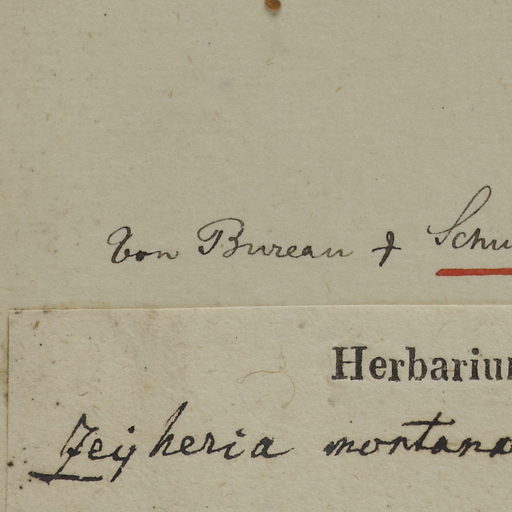 Von Bureau & Schu
Herbarium
Zeyheria montana